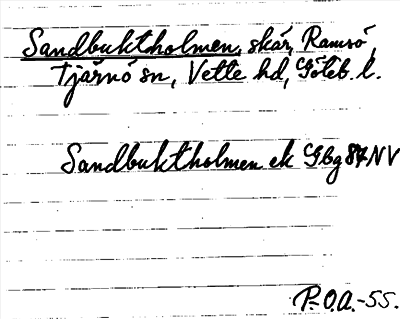 Sandbuktholmen, skär, Ramsö,
Tjärnö sn, Vette hd, Göteb. l.
Sandbuktholmen ek Gbg 87 NV
P.-O.A.-55.